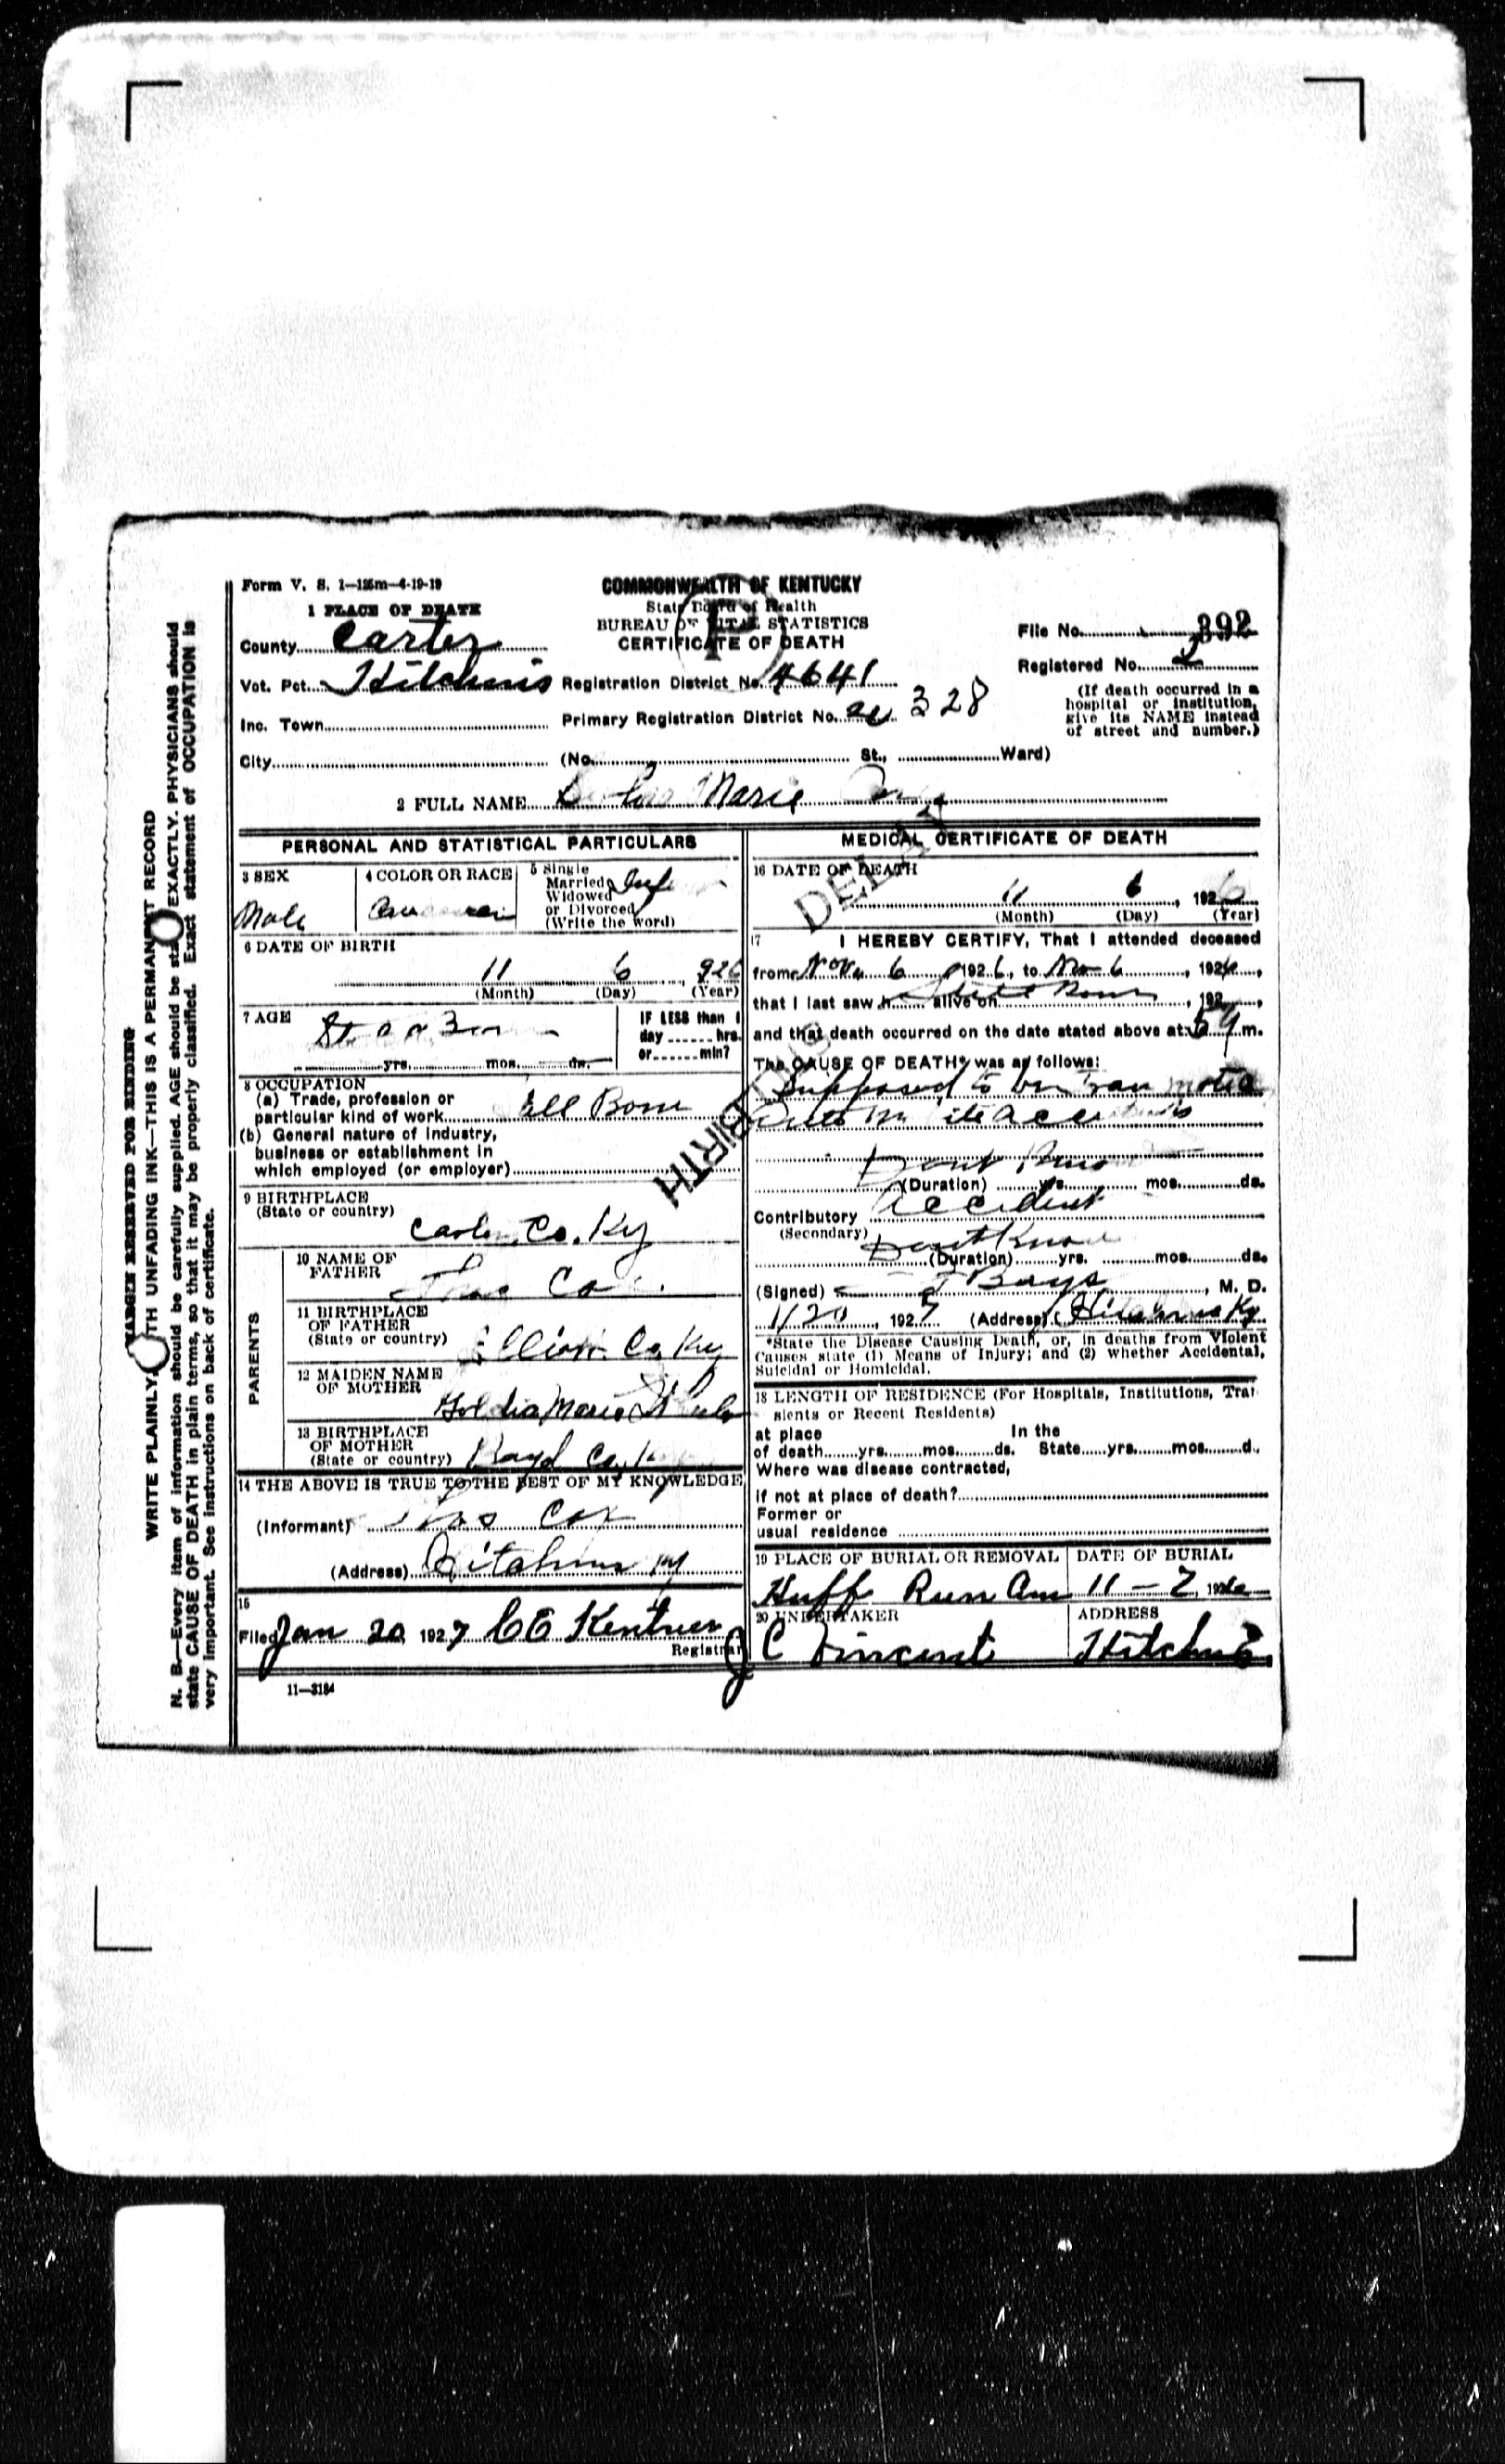 Form V. S. 1—125m—4-19-19
COMMONWEALTH OF KENTUCKY
State Board of Health
BUREAU OF VITAL STATISTICS
CERTIFICATE OF DEATH
1 PLACE OF DEATH
County Carter
File No. 392
Registered No. 2
(If death occurred in a hospital or institution, give its NAME instead of street and number.)
Vot. Pct. Hitchins Registration District No. 4641
Inc. Town Primary Registration District No. 328
City (No. St., Ward)
2 FULL NAME Marie
PERSONAL AND STATISTICAL PARTICULARS
3 SEX
Male
4 COLOR OR RACE
5 Single
Married
Widowed
or Divorced
(Write the word)
Inf
6 DATE OF BIRTH
11 6 926
(Month) (Day) (Year)
7 AGE
yrs. mos. ds.
IF LESS than 1
day hrs.
or min?
8 OCCUPATION
(a) Trade, profession or
particular kind of work
(b) General nature of industry,
business or establishment in
which employed (or employer)
9 BIRTHPLACE
(State or country)
Carter Co. Ky
PARENTS
10 NAME OF
FATHER
Thos Cox
11 BIRTHPLACE
OF FATHER
(State or country)
Elliott Co. Ky
12 MAIDEN NAME
OF MOTHER
Goldia Marie
13 BIRTHPLACE
OF MOTHER
(State or country)
Boyd Co. K
14 THE ABOVE IS TRUE TO THE BEST OF MY KNOWLEDGE
(Informant) Thos Cox
(Address) Hitchins Ky
15
Filed Jan 20 1927 C E Kentner
Registrar
11—3184
MEDICAL CERTIFICATE OF DEATH
16 DATE OF DEATH
11 6, 1926
(Month) (Day) (Year)
17 I HEREBY CERTIFY, That I attended deceased
from Nov 6 1926, to Nov 6, 1926,
that I last saw h alive on , 192 ,
and that death occurred on the date stated above at m.
The CAUSE OF DEATH* was as follows:
Supposed to be
Dont Know
(Duration) yrs. mos. ds.
Contributory Accident
(Secondary)
Dont Know
(Duration) yrs. mos. ds.
(Signed) Bays, M. D.
1/20, 1927 (Address) Hitchins Ky
*State the Disease Causing Death, or, in deaths from Violent
Causes state (1) Means of Injury; and (2) whether Accidental,
Suicidal or Homicidal.
18 LENGTH OF RESIDENCE (For Hospitals, Institutions, Tran-
sients or Recent Residents)
at place In the
of death yrs. mos. ds. State yrs. mos. d.
Where was disease contracted,
if not at place of death?
Former or
usual residence
19 PLACE OF BURIAL OR REMOVAL DATE OF BURIAL
Huff Run 11 - 7, 1926
20 UNDERTAKER ADDRESS
J C Vincent Hitchins
DELAY
BIRTH
MARGIN RESERVED FOR BINDING
WRITE PLAINLY, WITH UNFADING INK—THIS IS A PERMANENT RECORD
N. B.—Every item of information should be carefully supplied. AGE should be stated EXACTLY. PHYSICIANS should
state CAUSE OF DEATH in plain terms, so that it may be properly classified. Exact statement of OCCUPATION is
very important. See instructions on back of certificate.